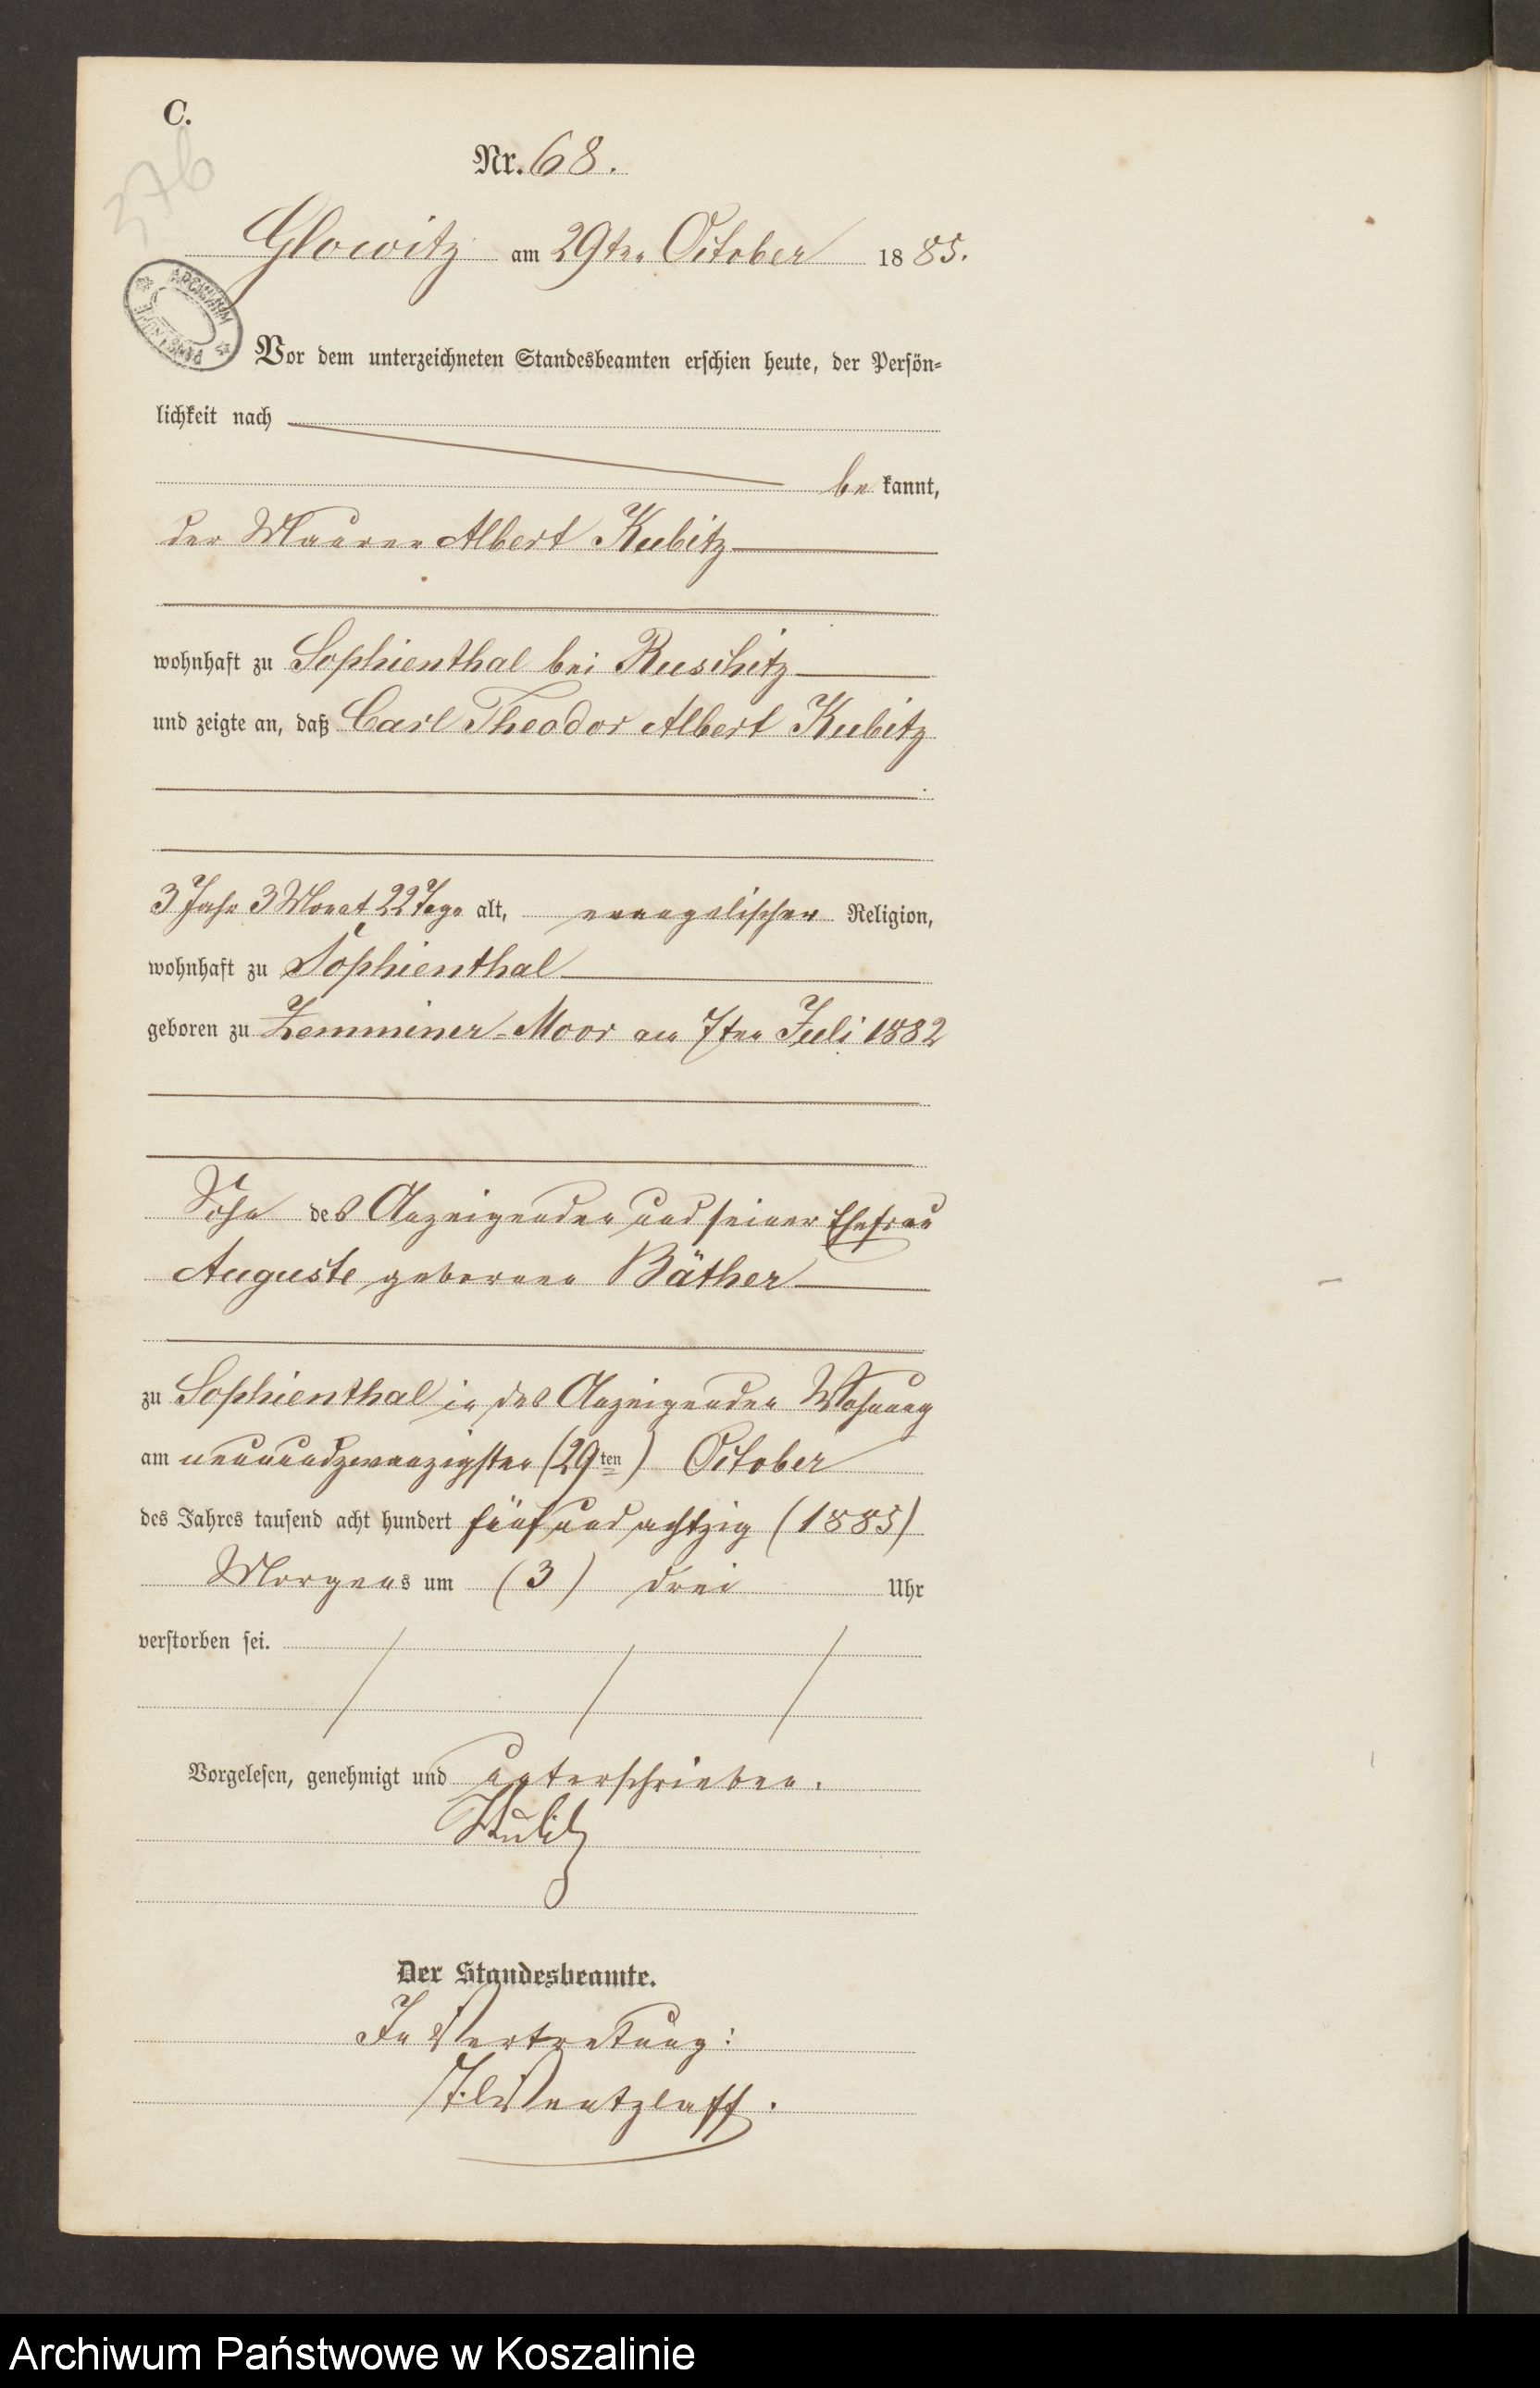 C.
376
Nr. 68.
Glowitz am 29ten October 1885.
ARCHIWUM
Vor dem unterzeichneten Standesbeamten erschien heute, der Persön-
lichkeit nach
be kannt,
der Maurer Albert Kubitz
wohnhaft zu Sophienthal bei Ruschitz
und zeigte an, daß Carl Theodor Albert Kubitz
3 Jahr 3 Monat 22 Tage alt, evangelischer Religion,
wohnhaft zu Sophienthal
geboren zu Zemminer-Moor am 7ten Juli 1882
Sohn des Anzeigenden und seiner Ehefrau
Auguste geborenen Bäther
zu Sophienthal in des Anzeigenden Wohnung
am neunundzwanzigsten (29ten) October
des Jahres tausend acht hundert fünf und achtzig (1885)
Morgens um (3) drei Uhr
verstorben sei.
Vorgelesen, genehmigt und unterschrieben.
Kubitz
Der Standesbeamte.
In Vertretung:
Wentzlaff.
Archiwum Państwowe w Koszalinie